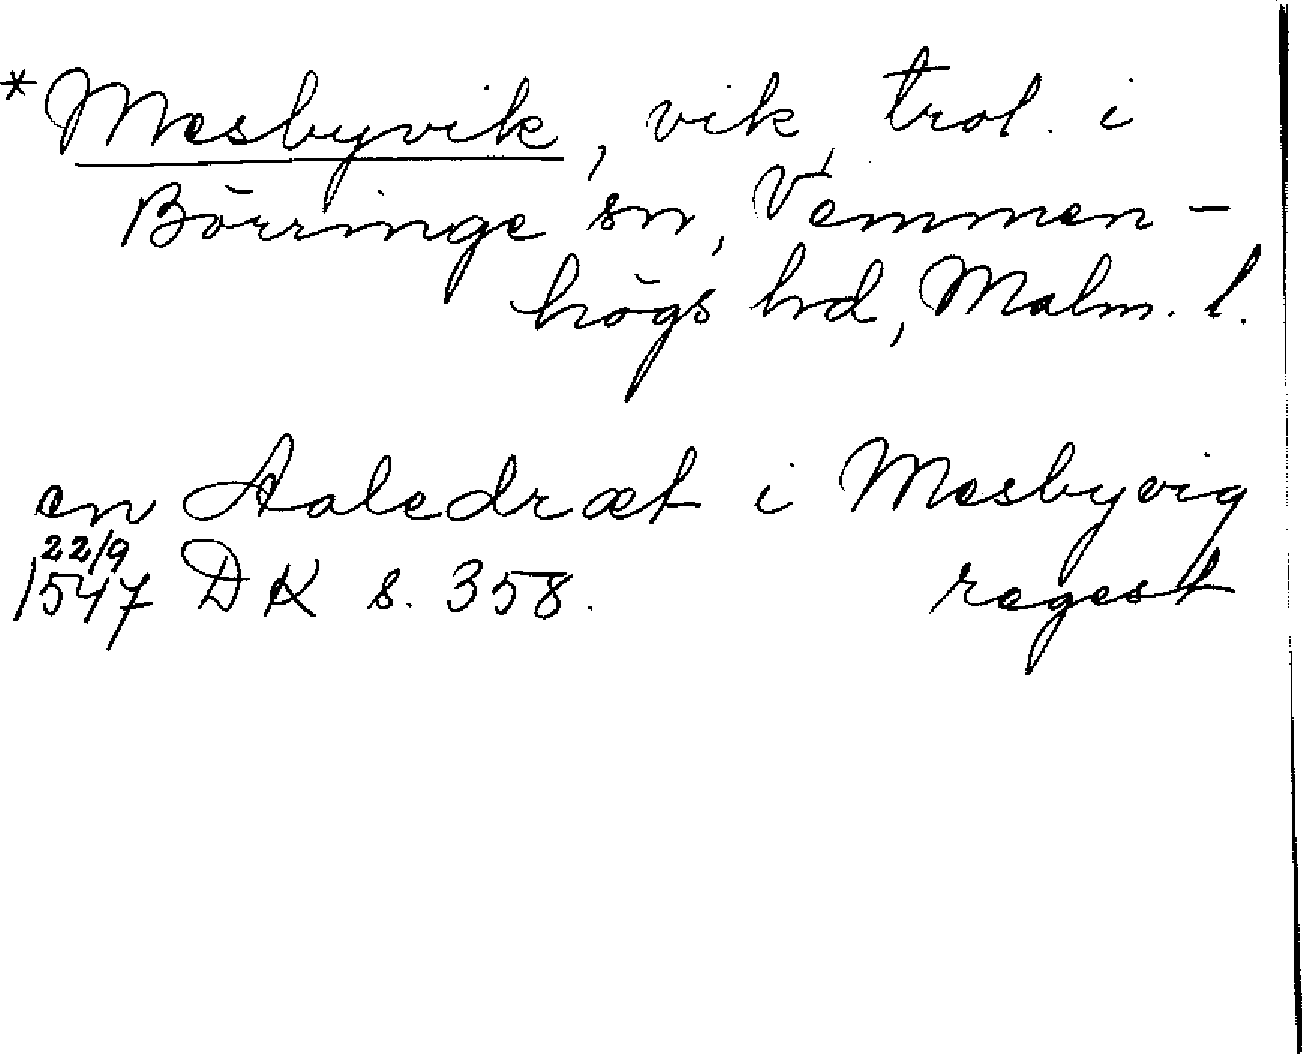 *Mesbyvik, vik, trol. i
Börringe sn, Vemmen-
högs hd, Malm. l.
en Aaledræt i Mesbyvig
22/9
1547 DK s. 358. regest